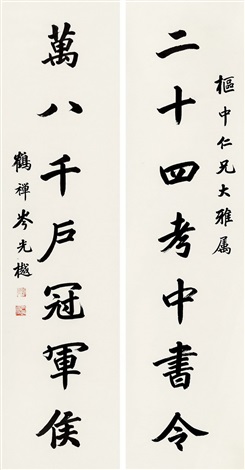 樞中仁兄大雅属
二十四考中書令
萬八千戶冠軍侯
鶴禪岑光樾